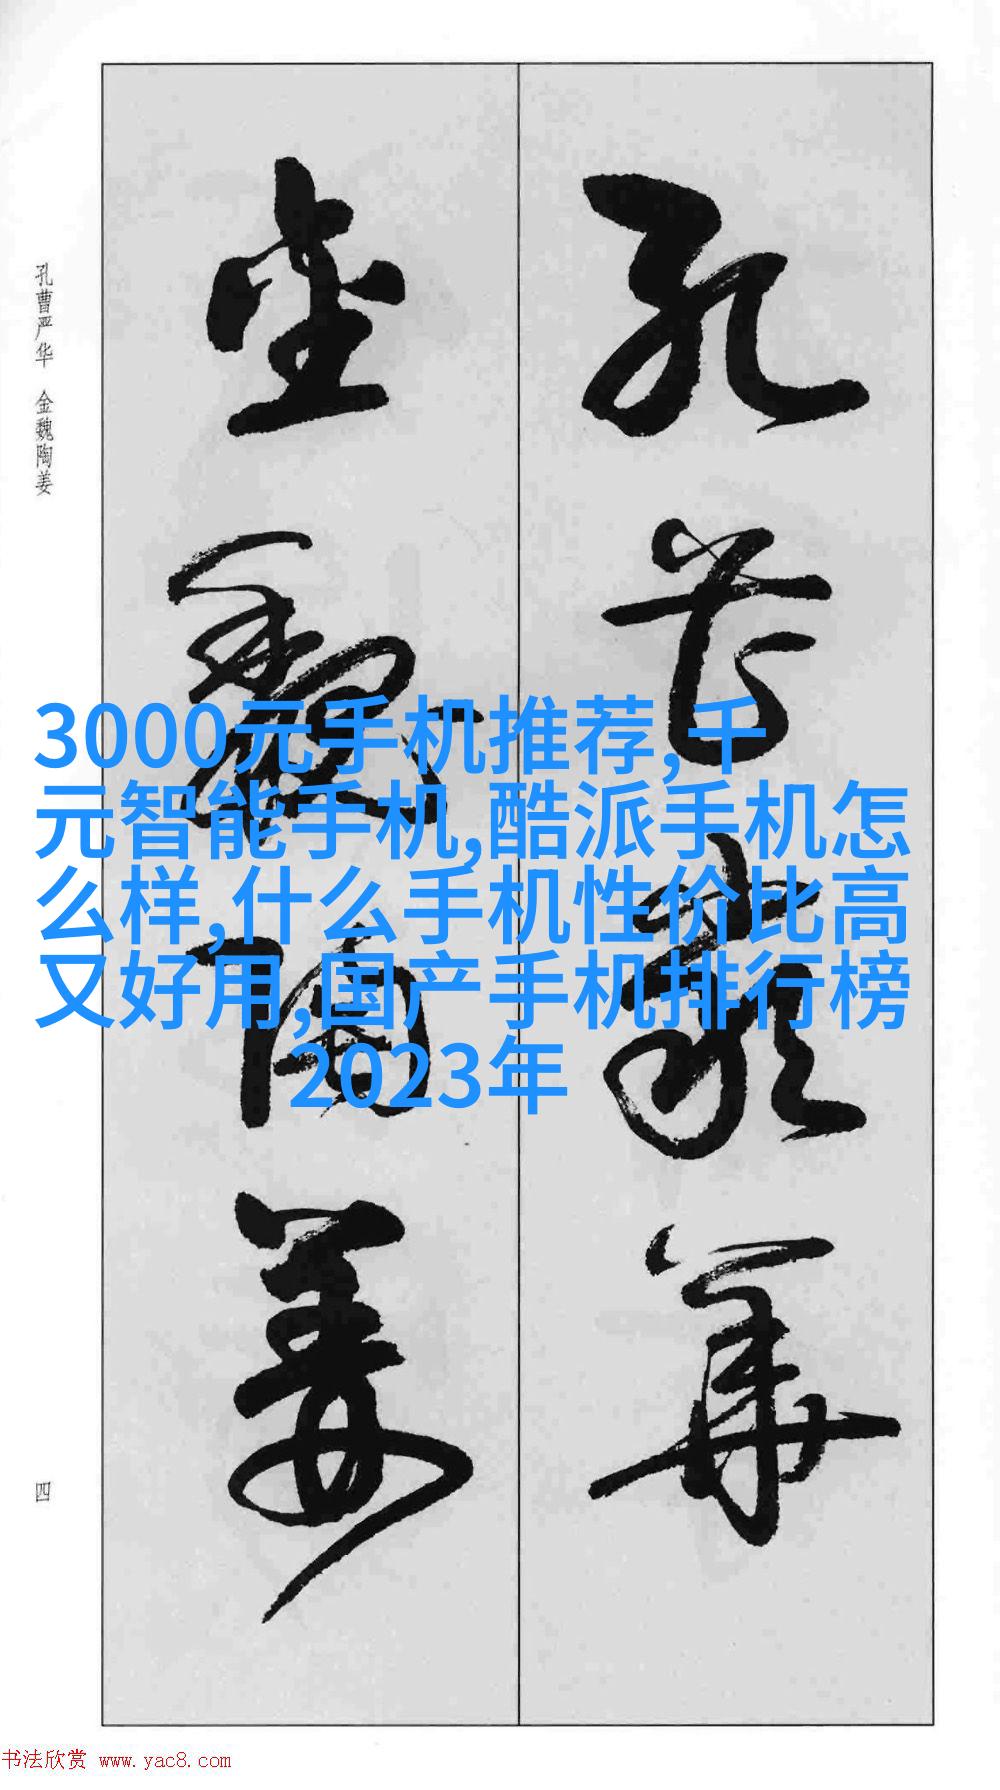 孔曹严华 金魏陶姜
孔曹嚴華
金魏陶姜
3000元手机推荐,千
元智能手机,酷派手机怎
么样,什么手机性价比高
又好用,国产手机排行榜
2023年
四
书法欣赏 www.yac8.com